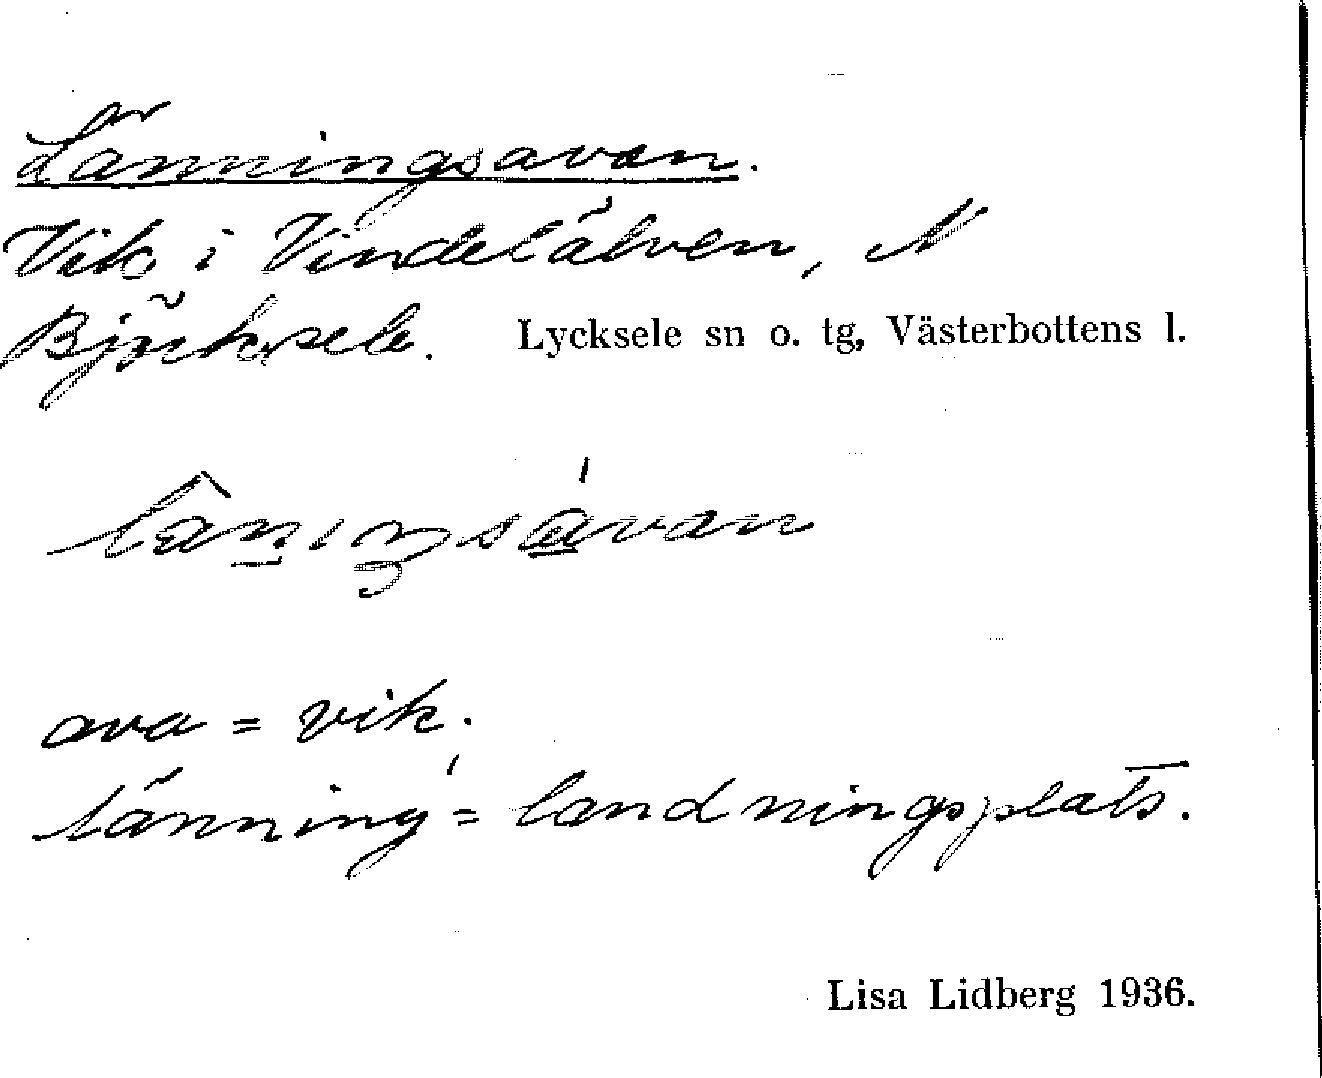 Länningsavan.
Vik i Vindelälven, N
Björksele. Lycksele sn o. tg, Västerbottens l.
ava = vik.
länning = landningsplats.
Lisa Lidberg 1936.